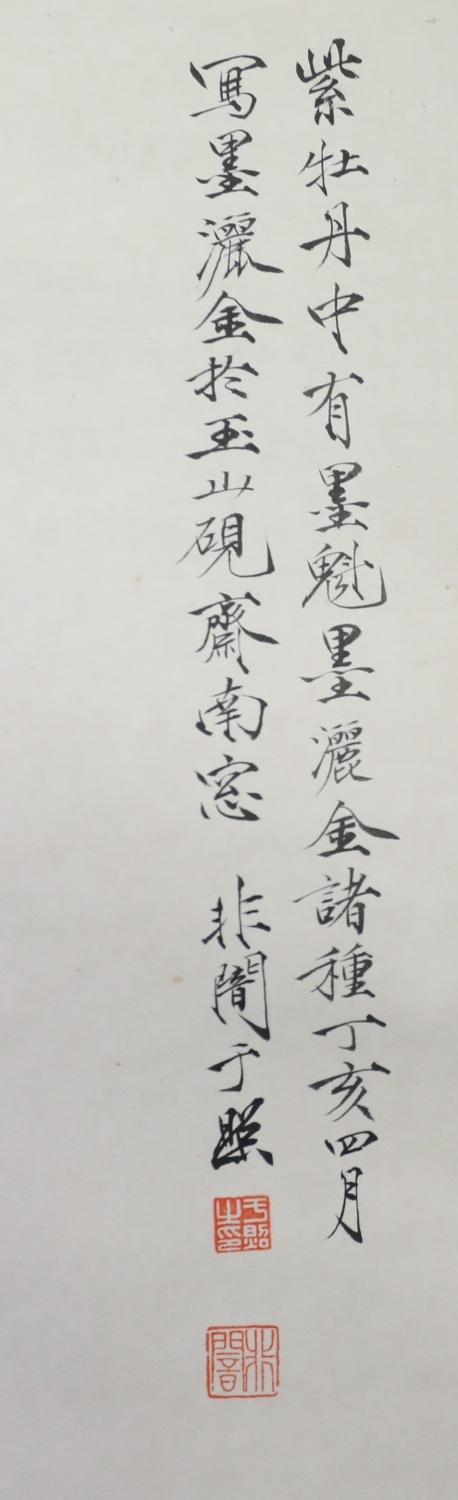 紫牡丹中有墨魁墨灑金諸種丁亥四月
寫墨灑金於玉山硯齋南窓 非闇于照
于照之印
非闇